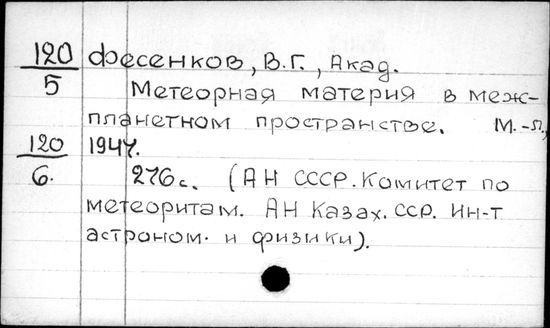 120 Фесенков, В.Г., Акад.
5 Метеорная материя в меж-
планетном пространстве. М.-Л.,
120 1947.
6. 276с. (АН СССР. Комитет по
метеоритам. АН Казах. ССР. Ин-т
астроном. и физики).